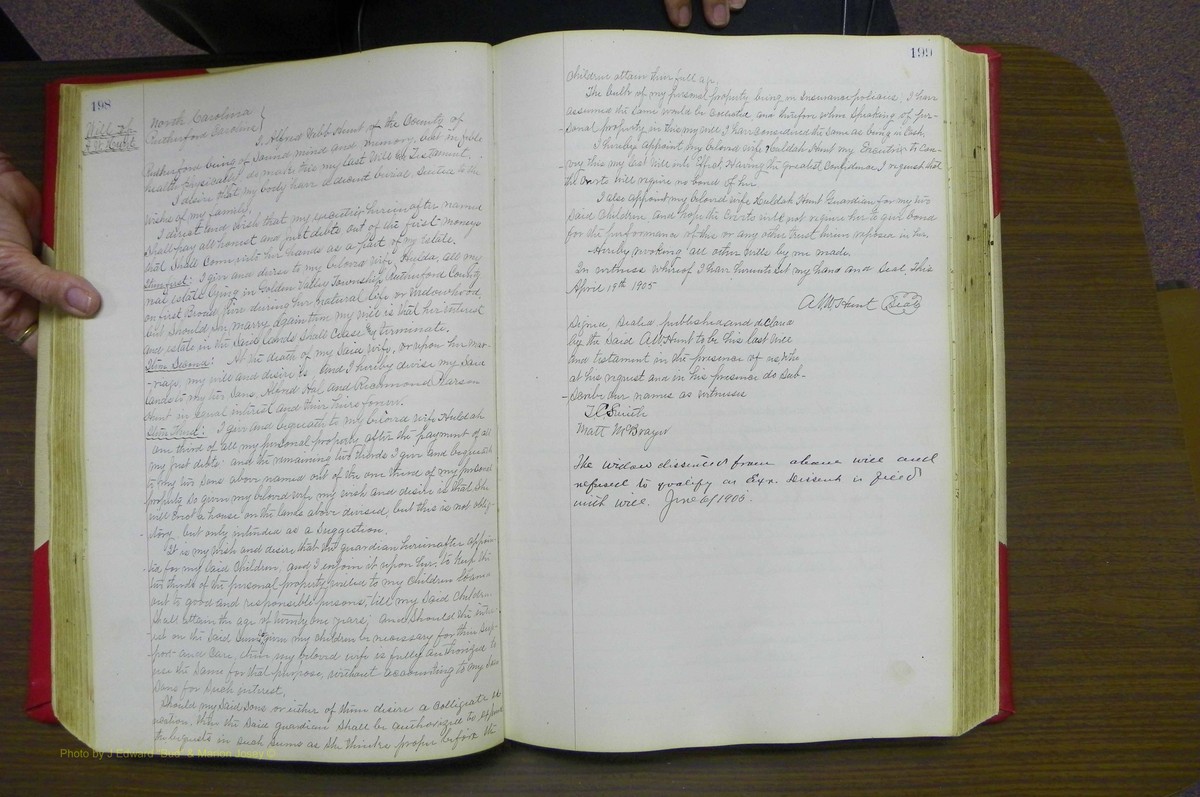 198
Will of
A. W. Hunt
North Carolina
Rutherford County
I, Alond Webb Hunt of the County of
Rutherford being of sound mind and memory, but in feble
health physically do make this my last Will & Testament.
I desire that my body have a decent burial suited to the
wishes of my family.
I direct and wish that my executrix hereinafter named
shall pay all honest and just debts out of the first moneys
that shall come into her hands as a part of my estate.
Item first: I give and devise to my beloved wife, Hulda, all my
real estate lying in Golden Valley Township, Rutherford County
on first Broad River during her natural life or widowhood,
but should she marry again then my will is that her interest
and estate in the said lands shall cease & terminate.
Item Second: At the death of my said wife, or upon her mar-
-riage, my will and desire is and I hereby devise my said
lands to my two sons, Alond Hal and Richmond Pearson
Hunt in equal interest and their heirs forever.
Item Third: I give and bequeath to my beloved wife Huldah
one third of all my personal property after the payment of all
my just debts: and the remaining two thirds I give and bequeath
to my two sons above named out of the one third of my personal
property so given my beloved wife, my wish and desire is that she
will erect a house on the lands above devised, but this is not oblig-
-atory, but only intended as a suggestion.
It is my wish and desire that the guardian hereinafter appoin-
ted for my said children, and I enjoin it upon her, to keep the
two thirds of the personal property willed to my children loaned
out to good and responsible persons, till my said children
shall attain the age of twenty one years; and should the inter-
-est on the said given my children be necessary for their sup-
-port and care, then my beloved wife is fully authorized to
use the same for that purpose, without accounting to my said
sons for such interest.
Should my said sons or either of them desire a colligiate ed-
-ucation, then the said guardian shall be authorized to expend
the bequests in such sums as she thinks proper before the
199
Children attain their full age.
The bulk of my personal property being in Insurance policies, I have
assumed the same would be collected and therefore when speaking of per-
-sonal property in this my will I have considered the same as being in cash.
I hereby appoint my beloved wife Huldah Hunt my Executrix to con-
-vey this my last will into effect. Having the greatest confidence I request that
the Courts will require no bond of her.
I also appoint my beloved wife Huldah Hunt Guardian for my two
said children and hope the Courts will not require her to give bond
for the performance of this or any other trust herein reposed in her.
Hereby revoking all other wills by me made.
In witness whereof I have hereunto set my hand and seal, this
April 19th 1905
A. W. Hunt (Seal)
Signed, sealed published and declared
by the said A W Hunt to be his last will
and testament in the presence of us who
at his request and in his presence do sub-
-scribe our names as witnesses
T. C. Smith
Matt McBrayer
The widow dissented from above will and
refused to qualify as Exx. Dissent is filed
with will. June 6/1905.
Photo by J Edward "Bud" & Marion Josey ©